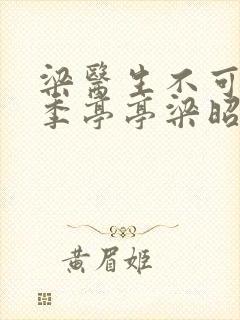 梁醫生不可
季亭亭梁昭
黄眉姬